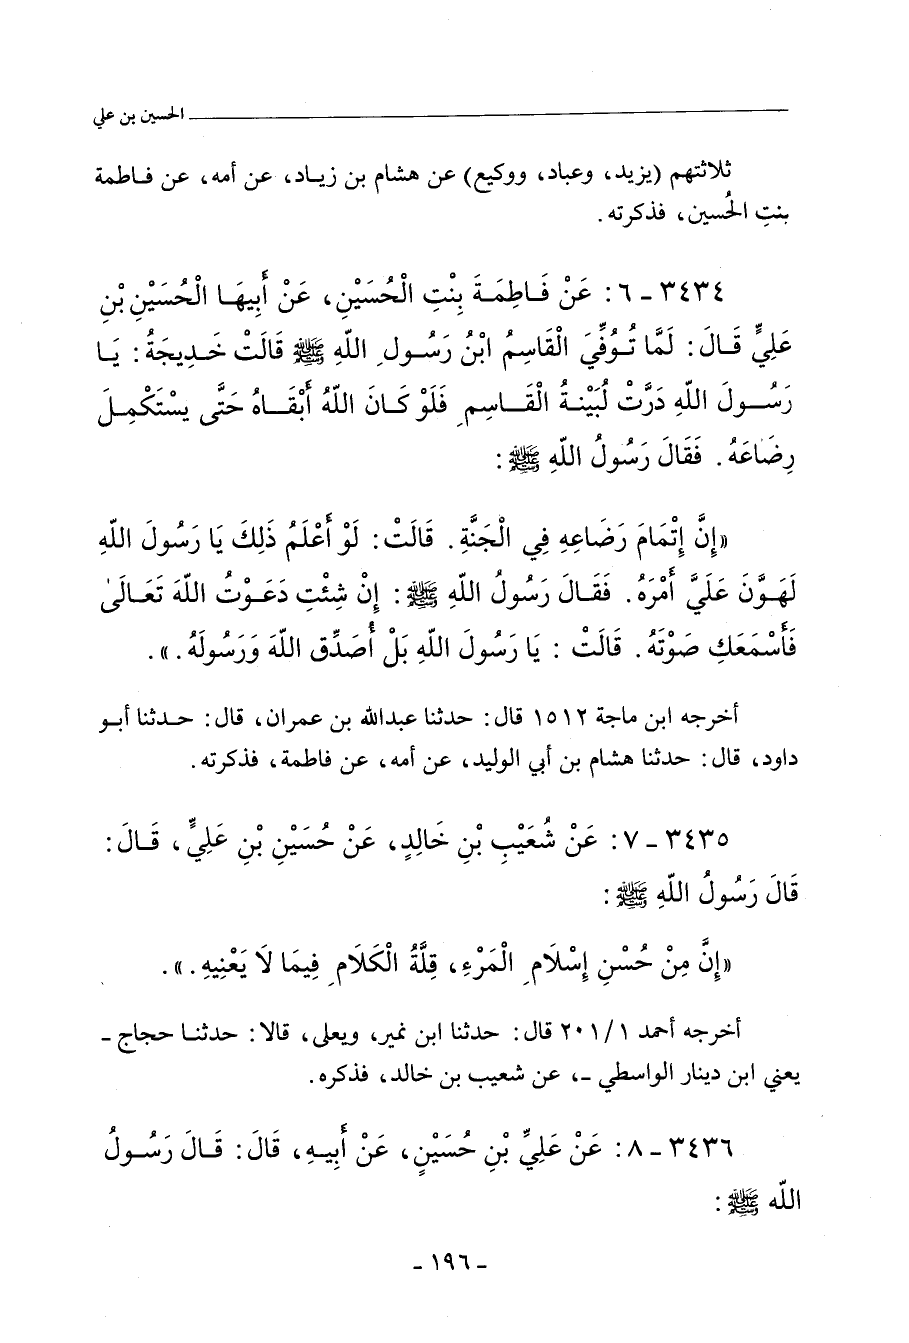 الحسين بن علي
ثلاثتهم (يزيد، وعباد، ووكيع) عن هشام بن زياد، عن أمه، عن فاطمة
بنتِ الحُسين، فذكرته.
٣٤٣٤ - ٦: عَنْ فَاطِمَةَ بِنْتِ الْحُسَيْنِ، عَنْ أَبِيهَا الْحُسَيْنِ بْنِ
عَلِيٍّ قَالَ: لَمَّا تُوُفِّيَ الْقَاسِمُ ابْنُ رَسُولِ اللّهِ ﷺ قَالَتْ خَدِيجَةُ: يَا
رَسُولَ اللّهِ دَرَّتْ لُبَيْنَةُ الْقَاسِمِ فَلَوْ كَانَ اللّهُ أَبْقَاهُ حَتَّى يسْتَكْمِلَ
رِضَاعَهُ. فَقَالَ رَسُولُ اللّهِ ﷺ:
«إِنَّ إِتْمَامَ رَضَاعِهِ فِي الْجَنَّةِ. قَالَتْ: لَوْ أَعْلَمُ ذَلِكَ يَا رَسُولَ اللّهِ
لَهَوَّنَ عَلَيَّ أَمْرَهُ. فَقَالَ رَسُولُ اللّهِ ﷺ: إِنْ شِئْتِ دَعَوْتُ اللّهَ تَعَالَىٰ
فَأَسْمَعَكِ صَوْتَهُ. قَالَتْ: يَا رَسُولَ اللّهِ بَلْ أُصَدِّق اللّهَ وَرَسُولَهُ.».
أخرجه ابن ماجة ١٥١٢ قال: حدثنا عبدالله بن عمران، قال: حدثنا أبو
داود، قال: حدثنا هشام بن أبي الوليد، عن أمه، عن فاطمة، فذكرته.
٣٤٣٥ - ٧: عَنْ شُعَيْبِ بْنِ خَالِدٍ، عَنْ حُسَيْنِ بْنِ عَلِيٍّ، قَالَ:
قَالَ رَسُولُ اللّهِ ﷺ:
«إِنَّ مِنْ حُسْنِ إِسْلَامِ الْمَرْءِ، قِلَّةُ الْكَلَامِ فِيمَا لَا يَعْنِيهِ.».
أخرجه أحمد ٢٠١/١ قال: حدثنا ابن نمير، ويعلى، قالا: حدثنا حجاج -
يعني ابن دينار الواسطي -، عن شعيب بن خالد، فذكره.
٣٤٣٦ - ٨: عَنْ عَلِيِّ بْنِ حُسَيْنٍ، عَنْ أَبِيهِ، قَالَ: قَالَ رَسُولُ
اللّه ﷺ:
- ١٩٦ -